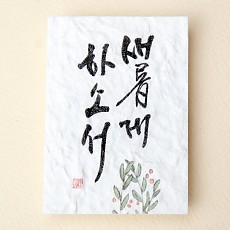 새롭게
하소서